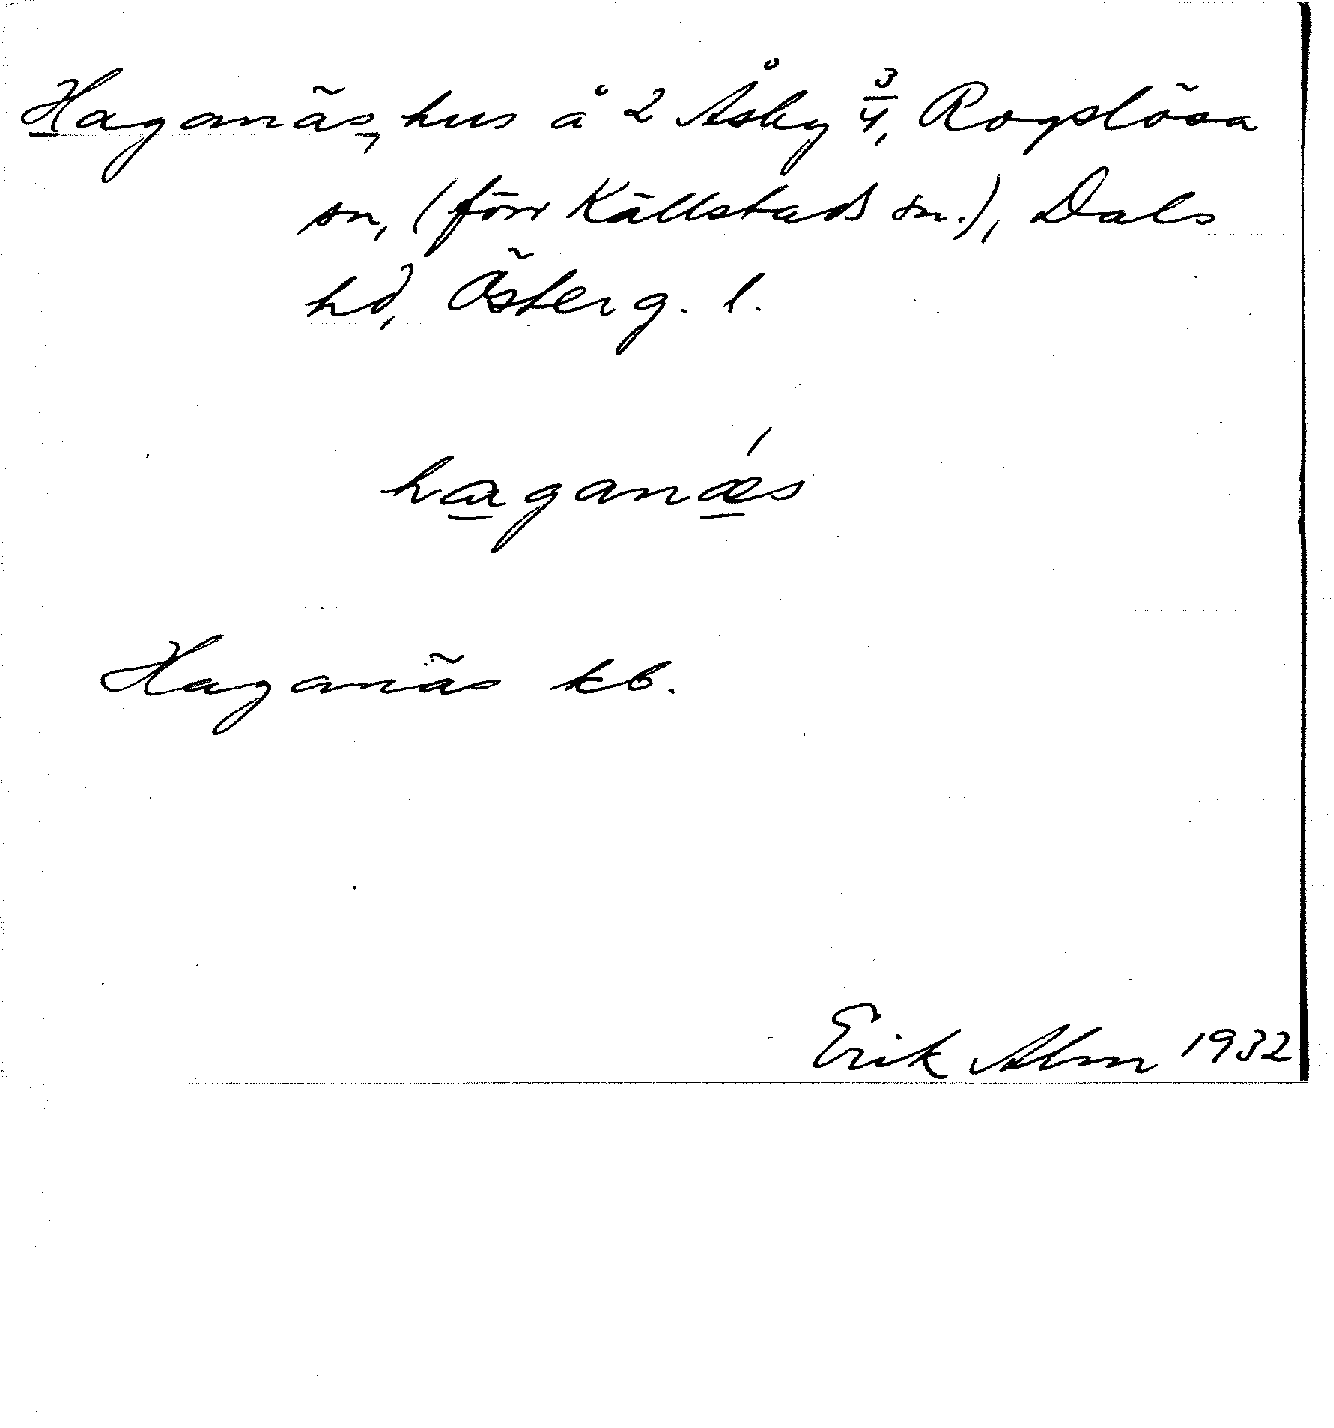 Haganäs, hus å 2 Åsby 3/4, Rogslösa
sn, (förr Källstads sn.), Dals
hd, Österg. l.
haganǽs
Haganäs kb.
Erik Alm 1932